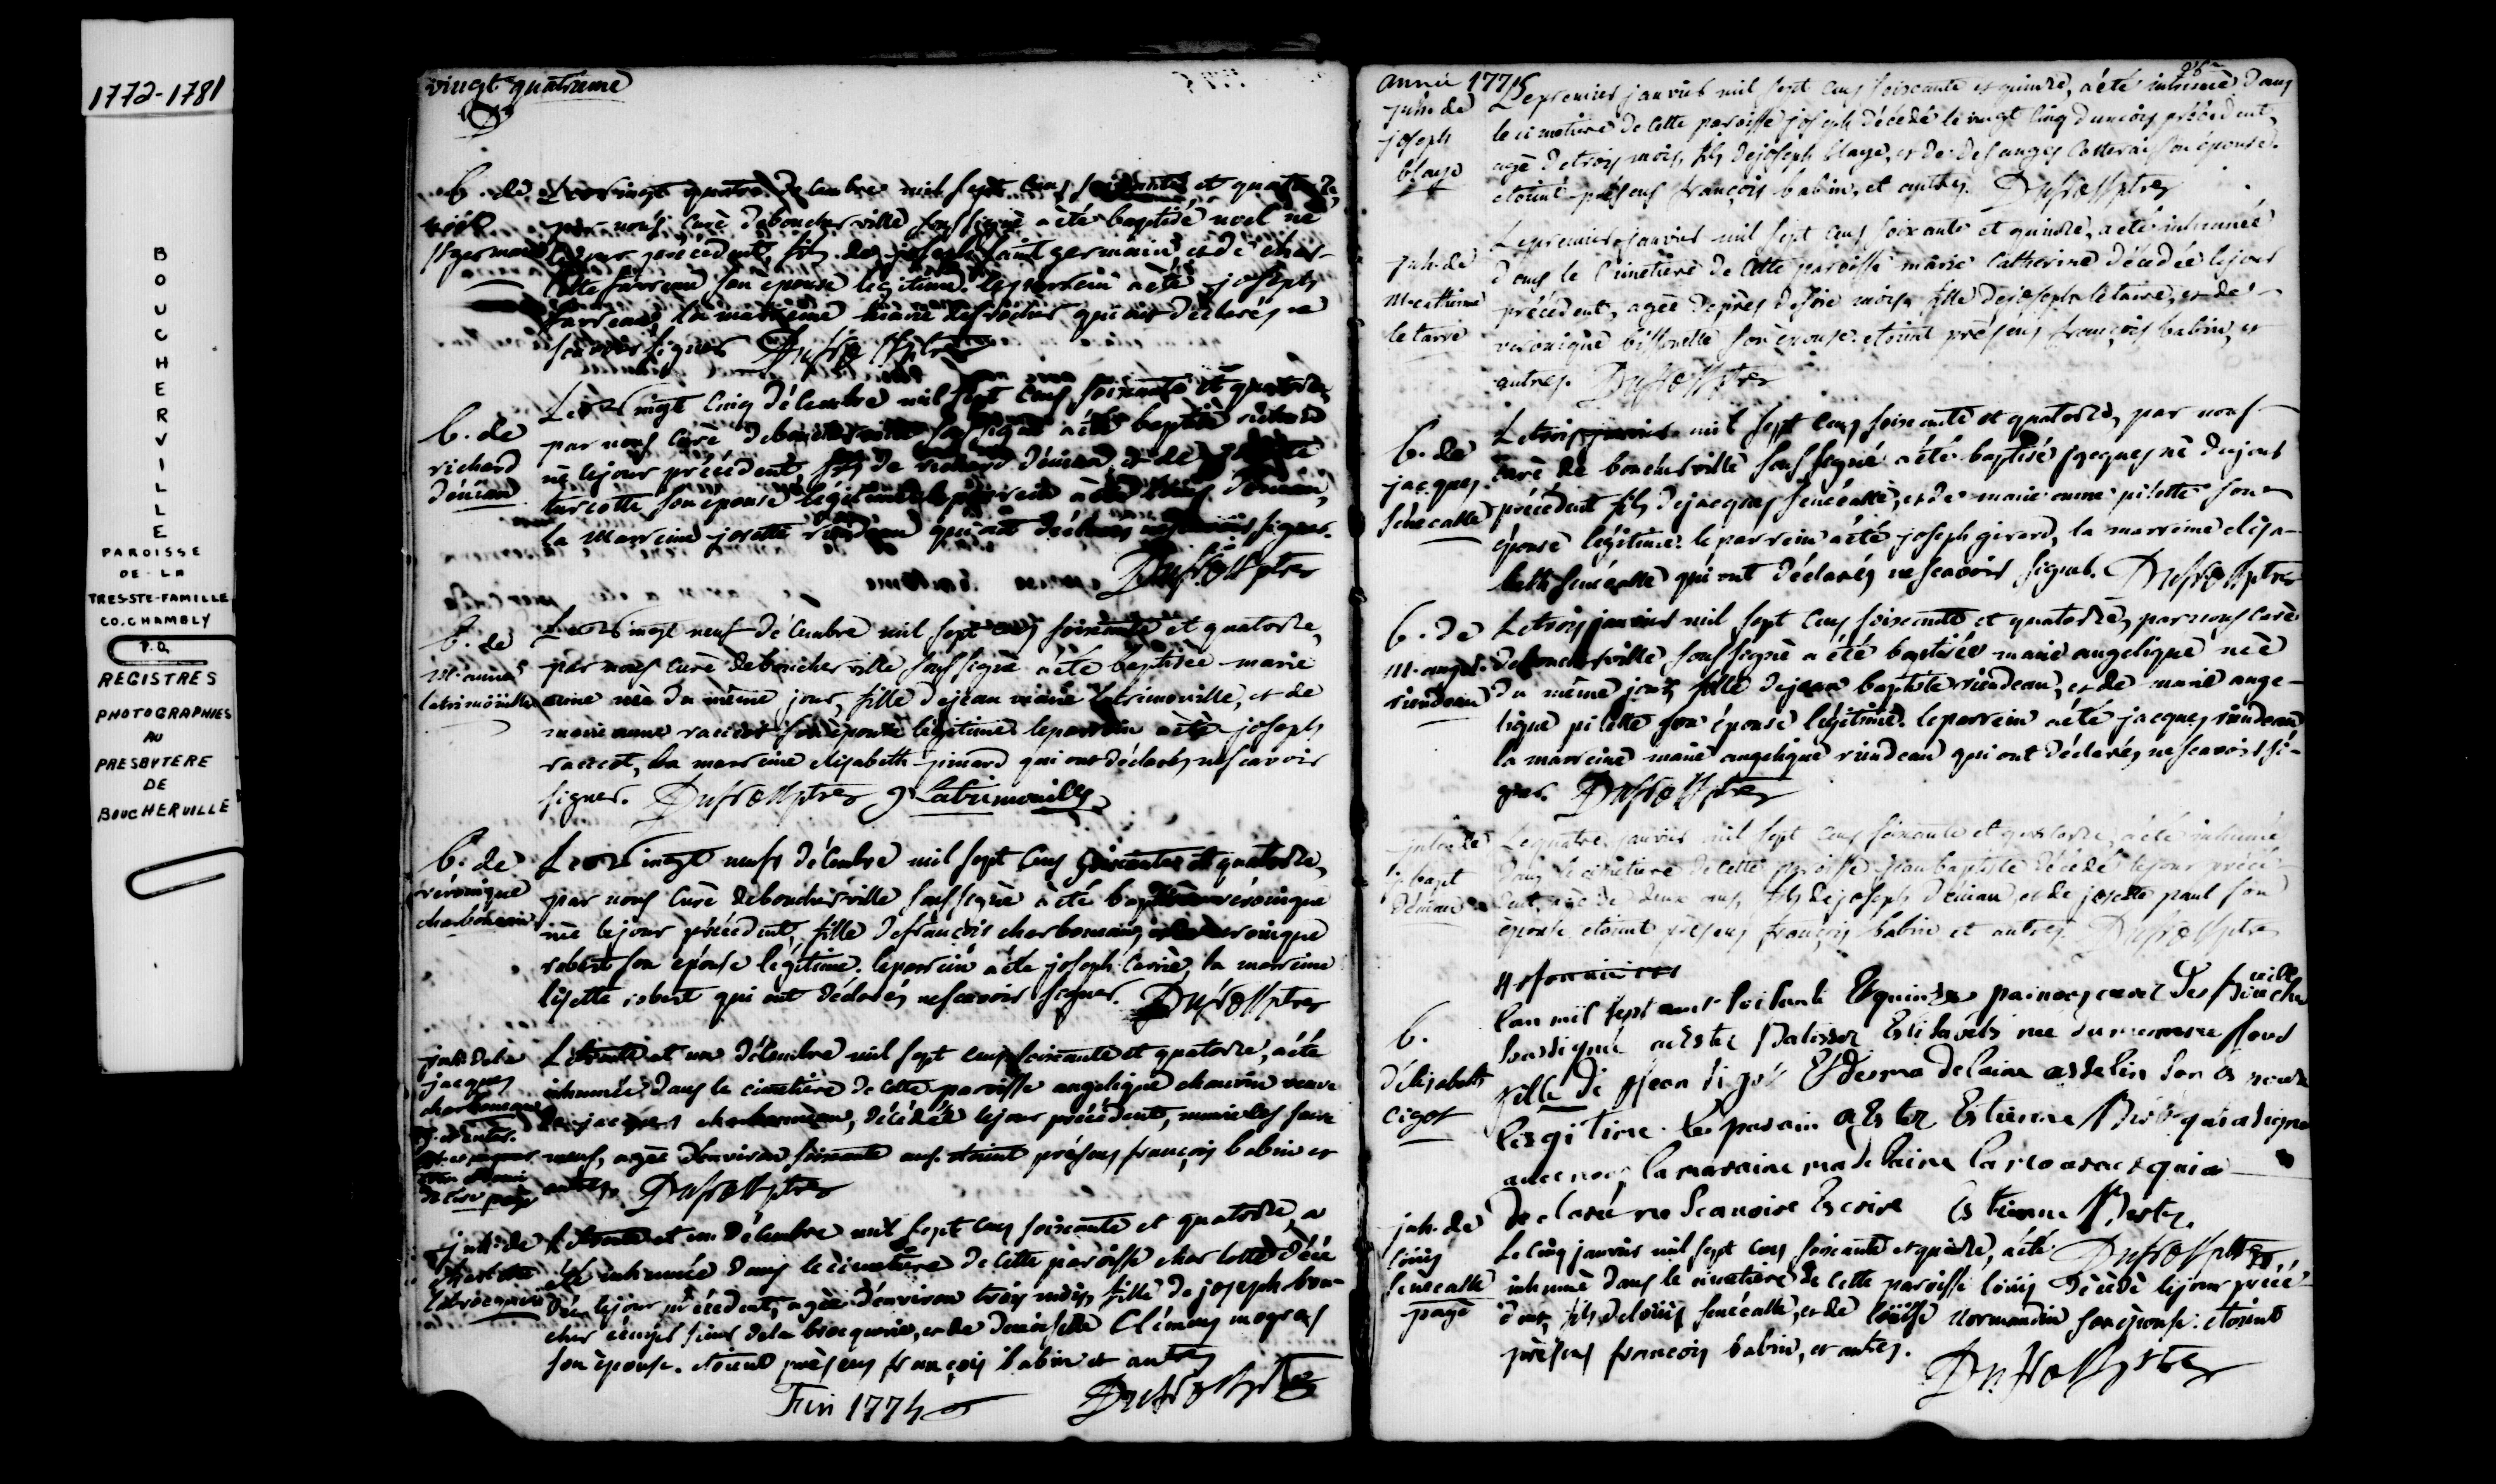 1772-1781
BOUCHERVILLE
PAROISSE
DE-LA
TRES-STE-FAMILLE
CO.CHAMBLY
P.Q.
REGISTRES
PHOTOGRAPHIES
AU
PRESBYTERE
DE
BOUCHERVILLE
vingt quatrieme
b. de
noël
st germain
Le vingt quatre décembre mil sept cens soixante et quatorze,
par nous curé deboucherville soussigné a été baptisé noel né
le jour précédent, fils de joseph saint germain, et de char-
lotte farreau son épouse légitime. le parrein a été joseph
farreau, la marreine marie qui ont déclarés ne
scavoir signer Dufrost ptre
b. de
richard
déniau
Le vingt cinq décembre mil sept cens soixante et quatorze,
par nous curé deboucherville soussigné a été baptisé richard
né le jour précédent, fils de richard déniau, et de
turcotte son épouse légitime le parrein a été louis déniau,
la marreine josette riendeau qui ont déclarés ne scavoir signer.
Dufrost ptre
b. de
m. anne
latrimoüille
Le vingt neuf décembre mil sept cens soixante et quatorze,
par nous curé deboucherville soussigné a été baptisée marie
anne née du même jour, fille de jean marie latrimouille, et de
marie anne raccicot son épouse légitime le parrein a été joseph
raccicot, la marreine elizabeth girard qui ont déclarés ne scavoir
signer. Dufrost ptre J Latrimouille
b. de
véronique
charbonneau
Le vingt neuf décembre mil sept cens soixante et quatorze,
par nous curé deboucherville soussigné a été baptisée véronique
née le jour précédent, fille de françois charbonneau, et de véronique
robert son épouse légitime. le parrein a été joseph carrié, la marreine
lisette robert qui ont déclarés ne scavoir signer. Dufrost ptre
inh. de la
jacques
charbonneau
Le trente et un décembre mil sept cens soixante et quatorze, a été
inhumée dans le cimetiere de cette paroisse angelique chauvin veuve
de jacques charbonneau, décédée le jour précédent, munie des sacre
mens, agée d'environ soixante ans. étoient présens françois babin et
autres. Dufrost ptre
inh. de
charlotte
labrocquerie
Le trente et un décembre mil sept cens soixante et quatorze, a
été inhumée dans le cimetiere de cette paroisse charlotte décé
dée le jour précédent, agée d'environ trois mois, fille de joseph bou-
cher écuyer sieur dela brocquerie, et de demoiselle Clémence mogras
son épouse. étoient présens françois babin et autres
Fin 1774 Dufrost ptre
année 1775
inh. de
joseph
blaye
Le premier janvier mil sept cens soixante et quinze, a été inhumé dans
le cimetiere de cette paroisse joseph décédé le vingt cinq du mois précédent,
agé de trois mois, fils de joseph blaye, et de des anges son épouse.
étoient présens françois babin, et autres. Dufrost ptre
inh. de
m. catherine
letarre
Le premier janvier mil sept cens soixante et quinze, a été inhumée
dans le cimetiere de cette paroisse marie catherine décédée le jour
précédent, agée de près de six mois, fille de joseph letarre, et de
véronique bissonette son épouse. étoient présens françois babin, et
autres. Dufrost ptre
b. de
jacques
sénécalle
Le trois janvier mil sept cens soixante et quatorze, par nous
curé de boucherville soussigné a été baptisé jacques né du jour
précédent fils de jacques sénécalle, et de marie anne pilette son
épouse légitime. le parrein a été joseph girard, la marreine elisa-
beth senécalle qui ont déclarés ne scavoir signer. Dufrost ptre
b. de
m. angel.
riendeau
Le trois janvier mil sept cens soixante et quatorze, par nous curé
deboucherville soussigné a été baptisée marie angelique née
du même jour, fille de jean baptiste riendeau, et de marie ange-
lique pilette son épouse légitime. le parrein a été jacques riendeau
la marreine marie angelique riendeau qui ont déclarés ne scavoir si-
gner. Dufrost ptre
inh. de
j. bapt
déniau
Le quatre janvier mil sept cens soixante et quatorze, a été inhumé
dans le cimetiere de cette paroisse jean baptiste décédé le jour précé-
dent, agé de deux ans, fils de joseph déniau, et de josette paul son
épouse. étoient présens françois babin et autres. Dufrost ptre
b.
d'elizabeth
cigot
lan mil sept cent soisante Et quinze par nous curé De Boucherville
soussigné a Esté Batisée Elisabeth née du mesme jour
fille De Jean sigot Et de ma delaine asselin son Epouse
lesgitime. le parain a Esté Estienne qui a signé
avec nous la maraine ma de laine qui a
declaré ne scauoire Escrire Estienne
Dufrost ptre
inh. de
loüis
senécalle
page
Le cinq janvier mil sept cens soixante et quinze, a été
inhumé dans le cimetiere de cette paroisse loüis décédé le jour précé-
dent, fils de loüis senécalle, et de loüise normandin son épouse. étoient
présens françois babin, et autres.
Dufrost ptre